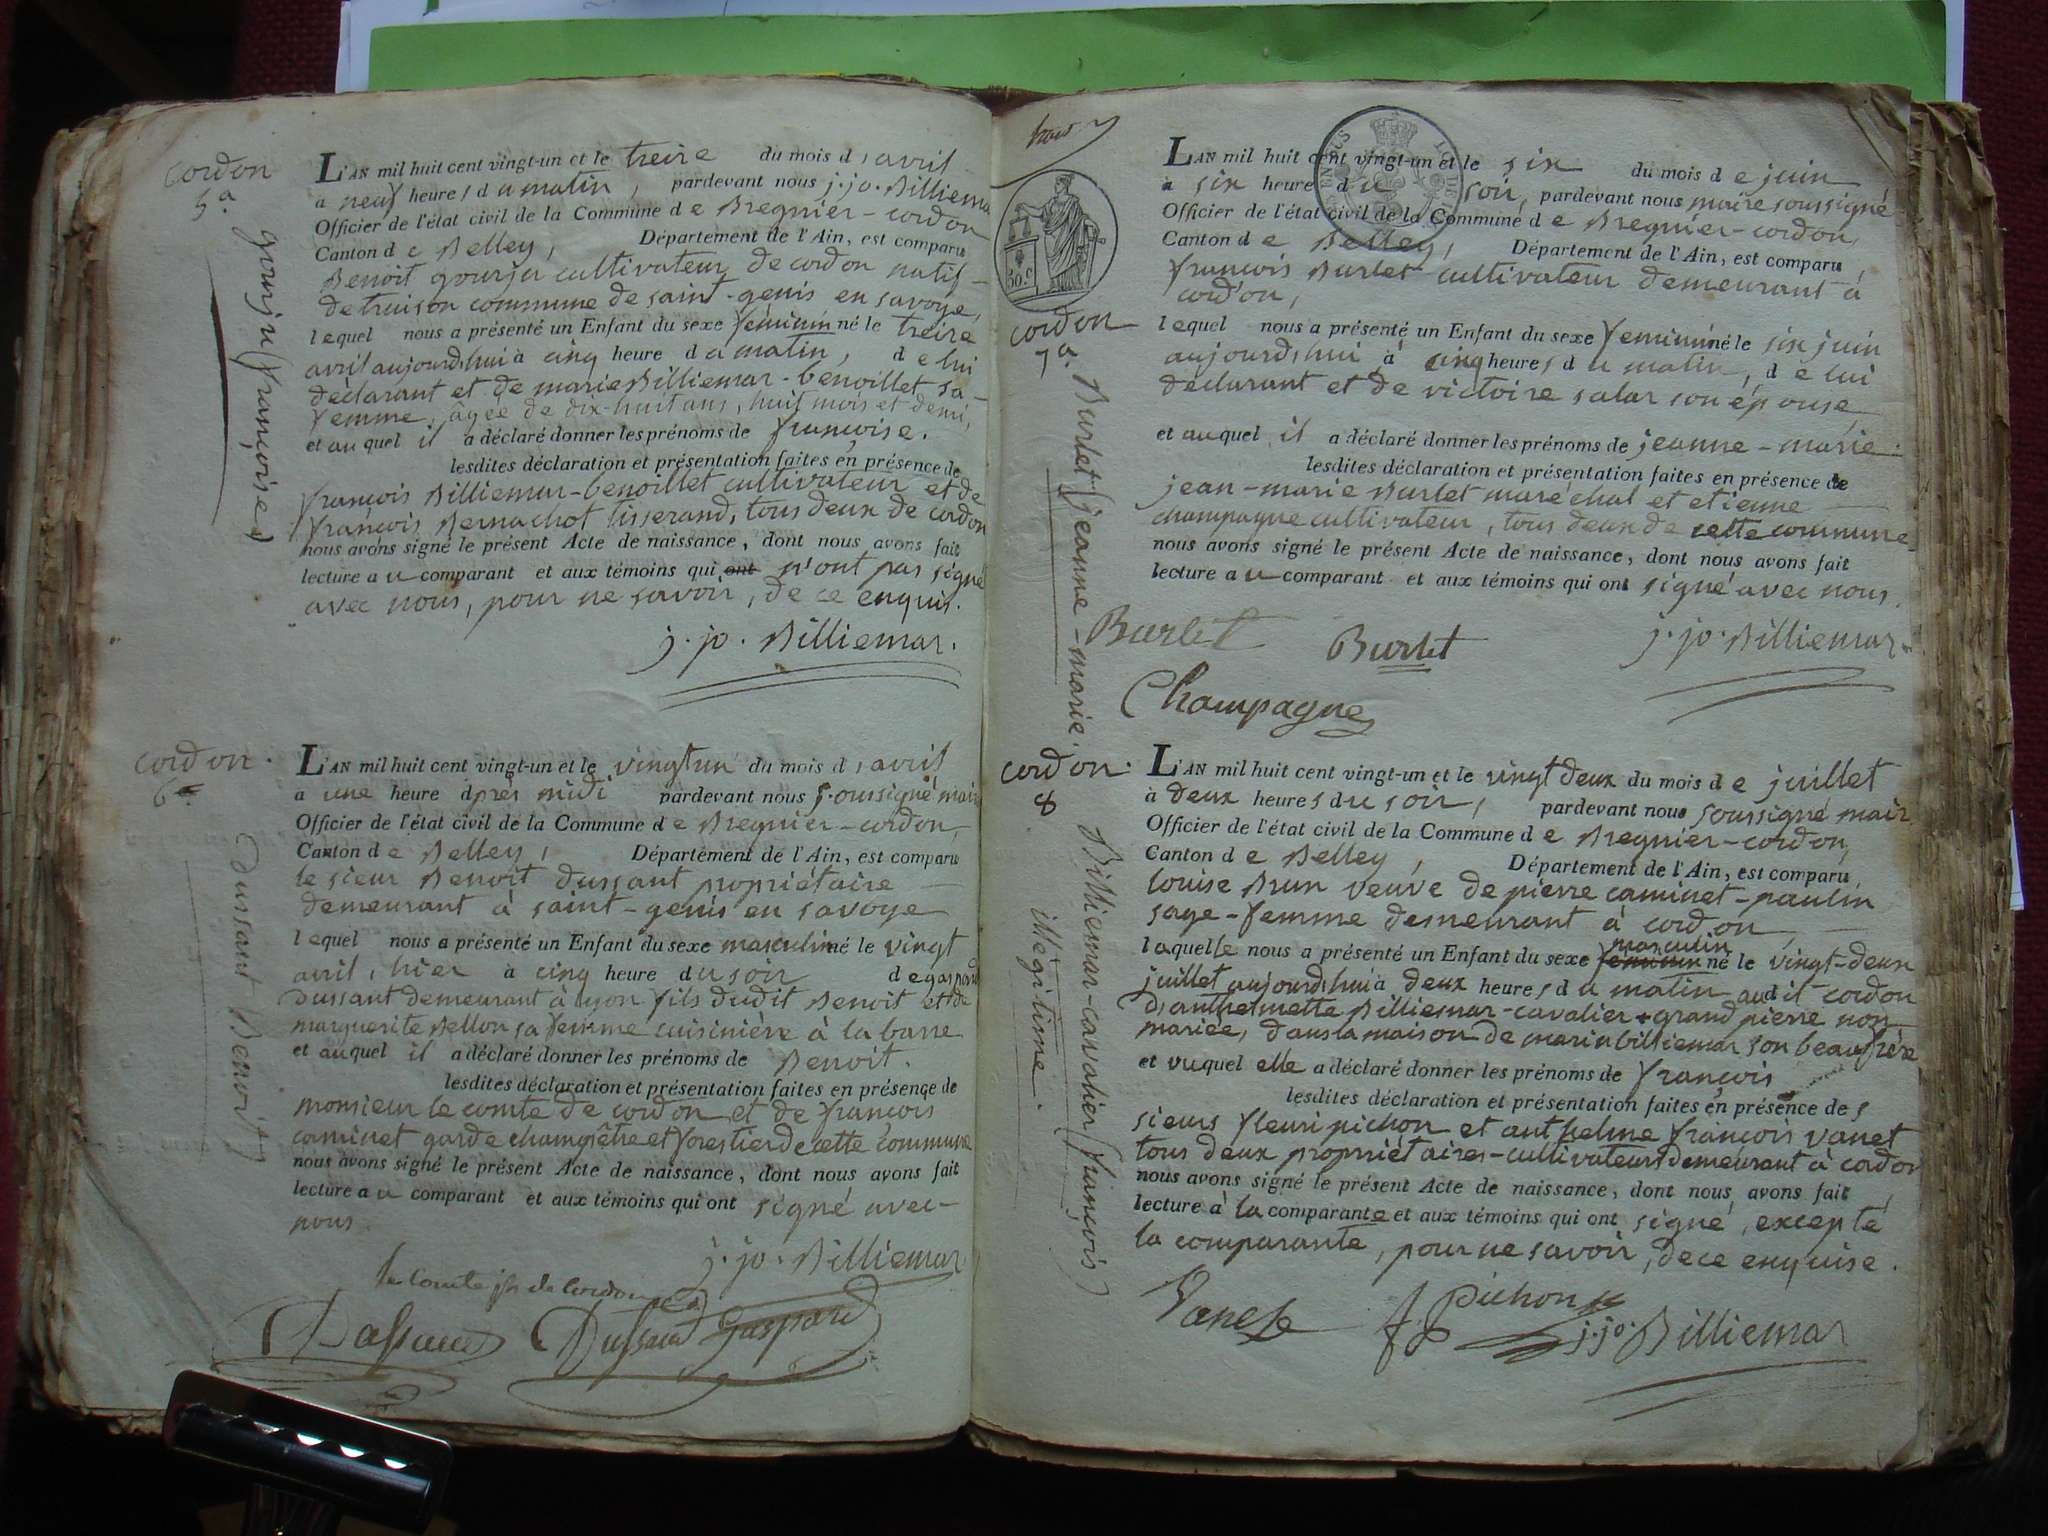 cordon
5a.
gourju (françoise)
L'AN mil huit cent vingt-un et le treize du mois d'avril
à neuf heures du matin, pardevant nous j. jo. Billiemar
Officier de l'état civil de la Commune de Bregnier-cordon
Canton de Belley, Département de l'Ain, est comparu
Benoit gourju cultivateur de cordon natif
de truison commune de saint-genis en savoye,
lequel nous a présenté un Enfant du sexe féminin né le treize
avril aujourd'hui à cinq heure du matin, de lui
déclarant et de marie Billiemar-benoillet sa
femme, âgée de dix-huit ans, huit mois et demi,
et auquel il a déclaré donner les prénoms de françoise.
lesdites déclaration et présentation faites en présence de
françois Billiemar-benoillet cultivateur et de
françois Bernachot tisserand, tous deux de cordon
nous avons signé le présent Acte de naissance, dont nous avons fait
lecture au comparant et aux témoins qui ont n'ont pas signé
avec nous, pour ne savoir, de ce enquis.
j. jo. Billiemar.
cordon.
6
Dussant Benoit
L'AN mil huit cent vingt-un et le vingt un du mois d'avril
à une heure après midi pardevant nous soussigné maire
Officier de l'état civil de la Commune de Bregnier-cordon,
Canton de Belley, Département de l'Ain, est comparu
le sieur Benoit Dussant propriétaire
demeurant à saint-genis en savoye
lequel nous a présenté un Enfant du sexe masculin né le vingt
avril, hier à cinq heure du soir de gaspard
Dussant demeurant à lyon fils dudit Benoit et de
marguerite Bellon sa femme cuisinière à la barre
et auquel il a déclaré donner les prénoms de Benoit.
lesdites déclaration et présentation faites en présence de
monsieur le comte de cordon et de françois
caminet garde champêtre et forestier de cette commune
nous avons signé le présent Acte de naissance, dont nous avons fait
lecture au comparant et aux témoins qui ont signé avec
nous.
j. jo. Billiemar
le Comte de Cordon
Dussant Dussant gaspard
50.c
cordon
7a.
Burlet (jeanne-marie.
L'AN mil huit cent vingt-un et le six du mois de juin
à six heure du soir, pardevant nous maire soussigné
Officier de l'état civil de la Commune de Bregnier-cordon,
Canton de Belley, Département de l'Ain, est comparu,
françois Burlet cultivateur demeurant à
cordon,
lequel nous a présenté un Enfant du sexe féminin né le six juin
aujourd'hui à cinq heures du matin, de lui
déclarant et de victoire salar son épouse
et auquel il a déclaré donner les prénoms de jeanne-marie.
lesdites déclaration et présentation faites en présence de
jean-marie Burlet maréchal et etienne
champagne cultivateur, tous deux de cette commune
nous avons signé le présent Acte de naissance, dont nous avons fait
lecture au comparant et aux témoins qui ont signé avec nous.
Burlet Burlet j. jo. Billiemar.
Champagne
cordon.
8
Billiemar-cavalier (françois)
illégitime.
L'AN mil huit cent vingt-un et le vingt deux du mois de juillet
à deux heures du soir, pardevant nous soussigné mair
Officier de l'état civil de la Commune de Bregnier-cordon,
Canton de Belley, Département de l'Ain, est comparu
louise Brun veuve de pierre caminet-paulin
sage-femme demeurant à cordon,
laquelle nous a présenté un Enfant du sexe féminin masculin né le vingt-deux
juillet aujourd'hui à deux heures du matin audit cordon
d'anthelmette Billiemar-cavalier + grand pierre non
mariée, dans la maison de marin billiemar son beau frère
et auquel elle a déclaré donner les prénoms de françois
lesdites déclaration et présentation faites en présence des
sieurs fleuri pichon et anthelme françois vanet
tous deux propriétaires-cultivateurs demeurant à cordon
nous avons signé le présent Acte de naissance, dont nous avons fait
lecture à la comparante et aux témoins qui ont signé, excepté
la comparante, pour ne savoir, de ce enquise.
Vanet f. pichon j. jo. Billiemar